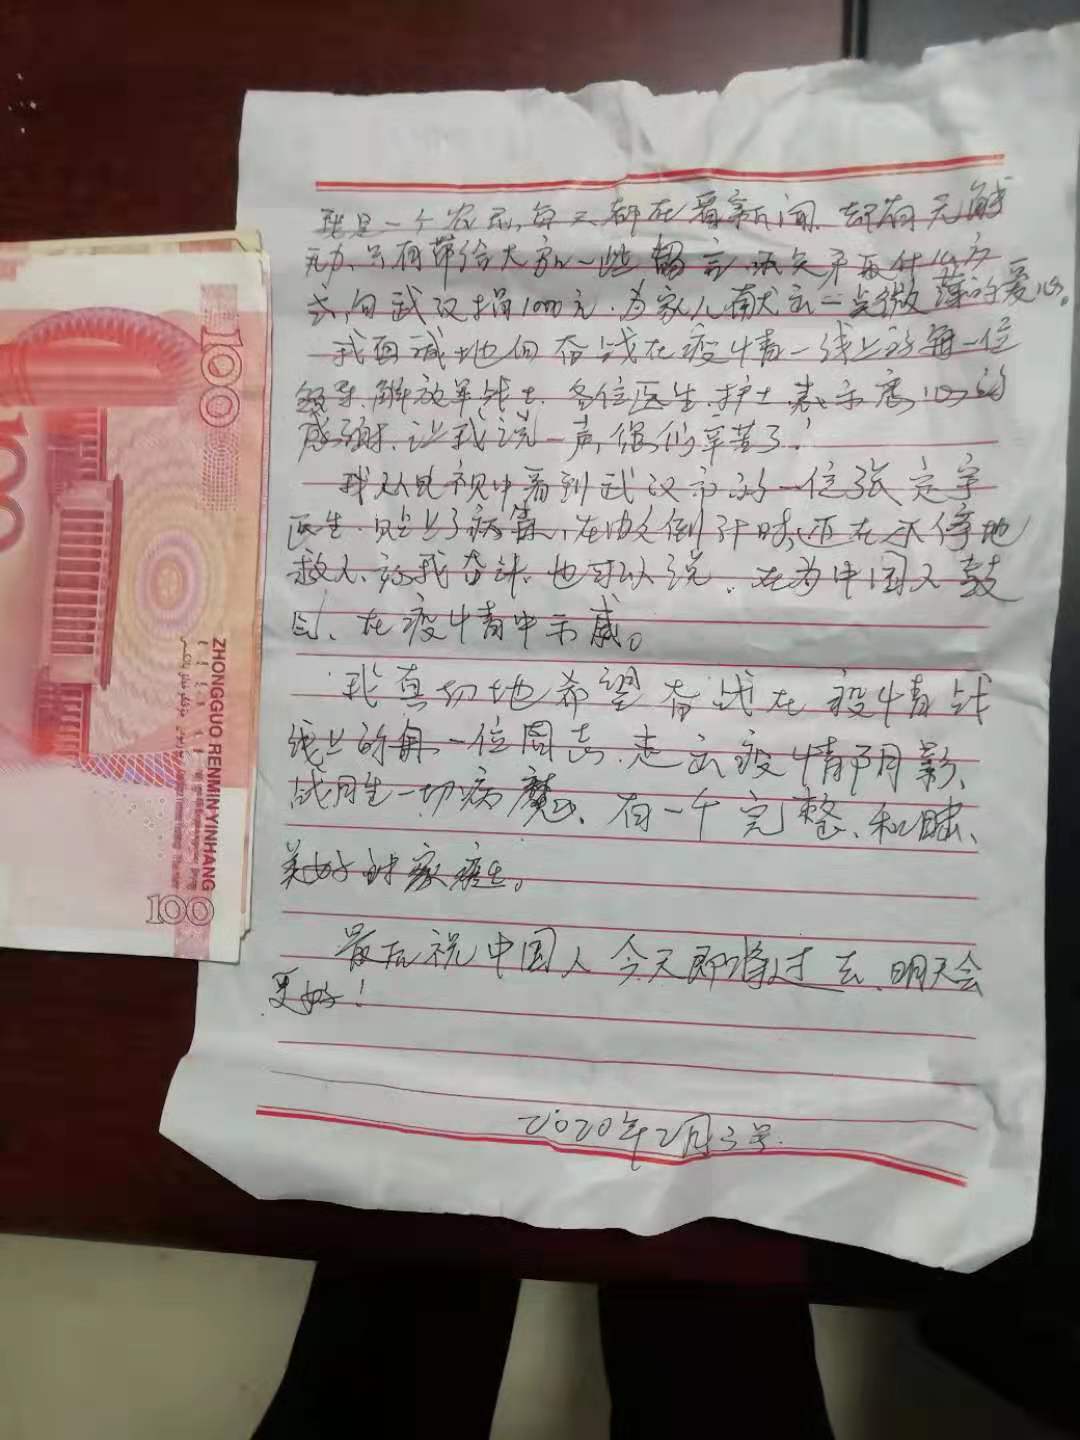 100
100
ZHONGGUO RENMIN YINHANG
100
我是一个农民,每天都在看新闻,却有无能
无力,只有带给大家一些留言,
式,向武汉捐1000元.为家人献出一点微薄的爱心。
我真诚地向奋战在疫情一线上的每一位
领导、解放军战士、各位医生、护士表示衷心的
感谢,让我说一声,您们辛苦了!
我从电视中看到武汉市的一位张定宇
医生.患上了病毒,在做倒计时,还在不停地
救人、奋斗,也可以说,在为中国人鼓
在疫情中示威。
我真切地希望奋战在疫情战
线上的每一位同志,走出疫情阴影、
战胜一切病魔、有一个完整、和睦、
美好的家庭。
最后祝中国人今天即将过去,明天会
更好!
2020年2月3号.